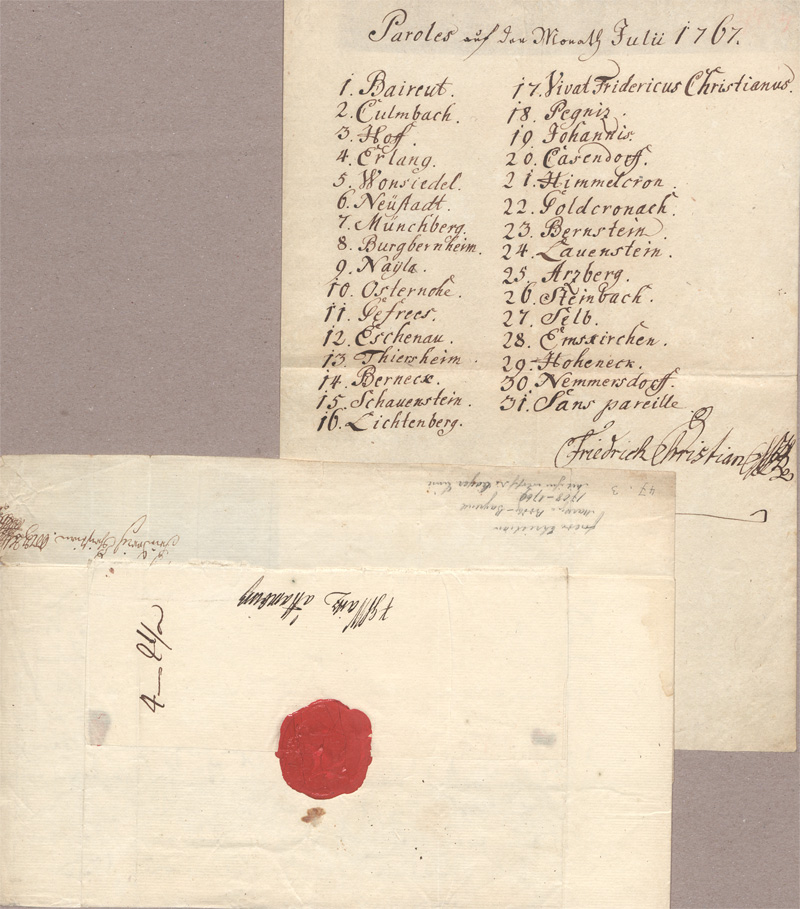 Paroles auf den Monath Julii 1767.
1. Baireut.
2. Culmbach.
3. Hoff.
4. Erlang.
5. Wonsiedel.
6. Neüstadt.
7. Münchberg.
8. Burgbernheim.
9. Nayla.
10. Osternohe.
11. Gefrees.
12. Eschenau.
13. Thiersheim.
14. Berneck.
15. Schauenstein.
16. Lichtenberg.
17. Vivat Fridericus Christianus.
18. Pegniz.
19. Johannis.
20. Casendorff.
21. Himmelcron.
22. Goldcronach.
23. Bernstein.
24. Lauenstein.
25. Arzberg.
26. Steinbach.
27. Selb.
28. Emskirchen.
29. Hoheneck.
30. Nemmersdorff.
31. Sans pareille
Friedrich Christian